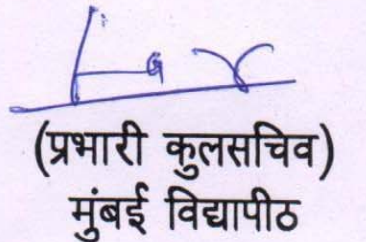 (प्रभारी कुलसचिव)
मुंबई विद्यापीठ